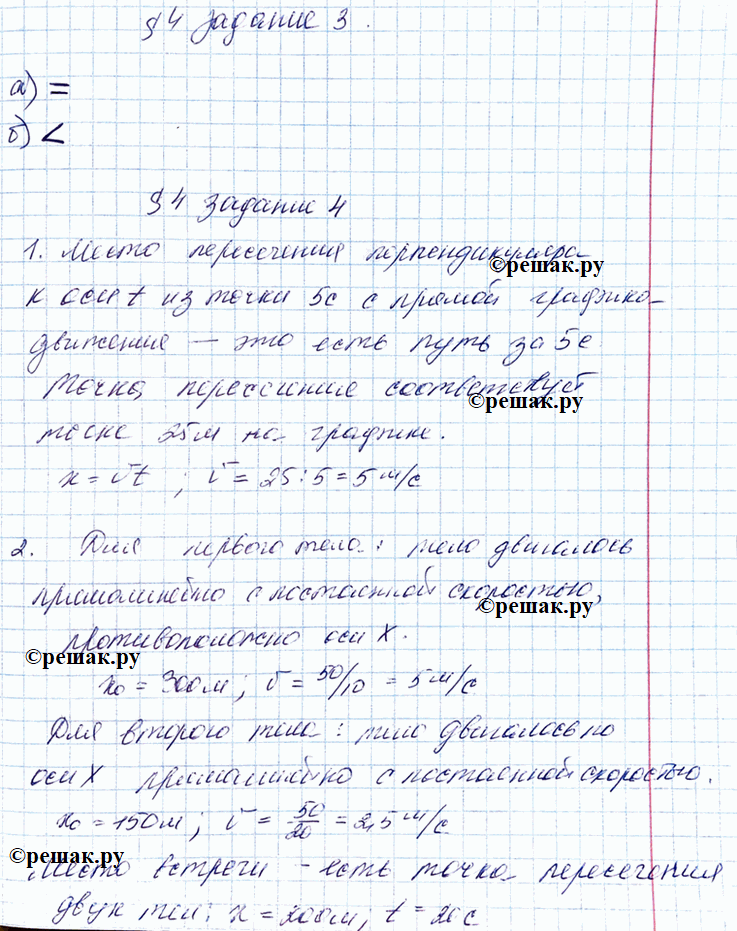 §4 Задание 3.
а) =
б) <
§4 Задание 4
1. Место пересечения перпендикуляра
©решак.ру
к оси t из точки 5с с прямой графико-
движения — это есть путь за 5с
Точка пересечение соответствует
©решак.ру
точке 25м на графике.
x = υt ; υ = 25:5 = 5 м/с
2. Для первого тела: тело двигалось
прямолинейно с постоянной скоростью,
©решак.ру
противоположно оси X.
©решак.ру
x₀ = 300м; υ = 50/10 = 5 м/с
Для второго тела: тело двигалось по
оси X прямолинейно с постоянной скоростью.
x₀ = 150м; υ = 50/20 = 2,5 м/с
©решак.ру
Место встречи - есть точка пересечения
двух тел: x = 200м; t = 20с